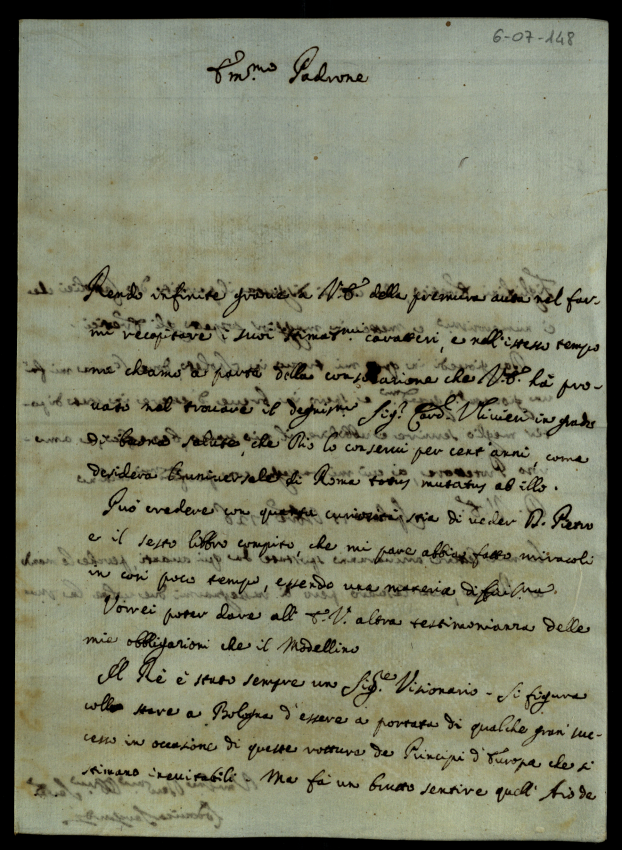 6-07-148
Em.mo Padrone
Rendo infinite grazie a V.E. della premura auta nel far-
mi recapitare i suoi stimat.mi caratteri, e nell'istesso tempo
me chiamo a parte della consolazione che V.E. hà pro-
uato nel trouare il degnissmo Sig.r Card. Vliuieri in grado
di buona salute, che Dio lo conserui per cent'anni, come
desidera l'universale di Roma totus mutatus ab illo.
Può credere con quanta curiosità stia di ueder D. Pietro
e il sesto libro compito, che mi pare abbia fatto miracoli
in così poco tempo, essendo una materia
Vorrei poter dare all' E.V. altra testimonianza delle
mie obbligazioni che il Modellino
Il Rè è stato sempre un Sig.re Visionario - si figura
collo stare a Bologna d'essere a portata di qualche gran suc-
cesso in occasione di queste rotture de Principi d'Europa che si
stimano ineuitabili. Ma fà un brutto sentire quell'